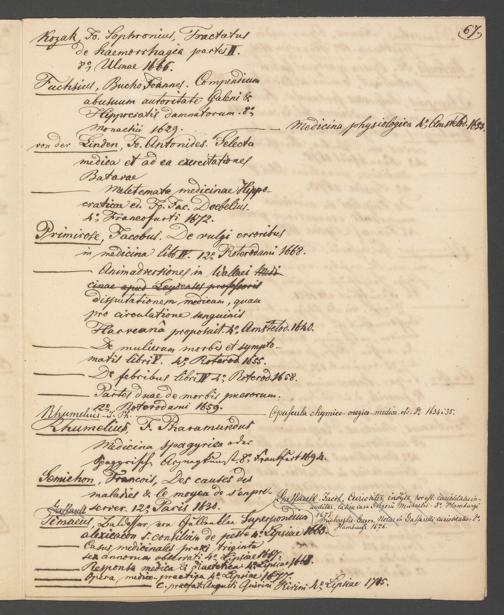 67.
Kozak, Jo. Sophronius, Tractatus
de haemorrhagia partes II.
8º, Ulmae 1666.
Fuchsius, Joannes. Compendium
abusuum autoritate Galeni &
Hippocratis damnatorum. 8º.
Monachii 1629.
Medicina physiologica 4º. Amstelod. 1653.
von der Linden, Jo. Antonides. Selecta
medica et ad ea exercitationes
Batavae
Meletemata medicinae Hippo-
craticae ed. Jo. Jac. Doebelius.
4º. Francofurti 1672.
Primirose, Jacobus. De vulgi erroribus
in medicina libri IV. 12º. Roterodami 1668.
Animadversiones in Wallaei
disputationem medicam, quam
pro circulatione sanguinis
Harveana proposuit. 4º. Amstelod. 1640.
De mulierum morbis et sympto-
matis libri V. 4º. Roterod. 1655.
De febribus libri IV 4º. Roterod. 1658.
Partes duae de morbis puerorum.
12º. Roterodami 1659.
Rhumelius J. Ph. Opuscula chymico-magica-medica etc. 1634-35.
Rhumelius, J. Pharamundus
Medicina spagyrica oder
Spagyrische Arzneykunst. 8º. Frankfurt
Semichon, Francois, Des causes des
maladies & le moyen de s'enpre-
server. 12º. Paris 1630.
Gaffarell. Jacob, Curiositez
Hamburgi
1676.
Timaeus, Baldassar, von Güldenklee
alexicacon s. consilium de peste 4º. Lipsiae
Casus medicinales praxi triginta
sex annorum observati 4º. Lipsiae
Responsa medica & diaetetica 4º. Lipsiae 1668.
Opera medico-practica 4º. Lipsiae 1677.
C. praefat. Augusti Quirini Rivini 4º. Lipsiae 1715.